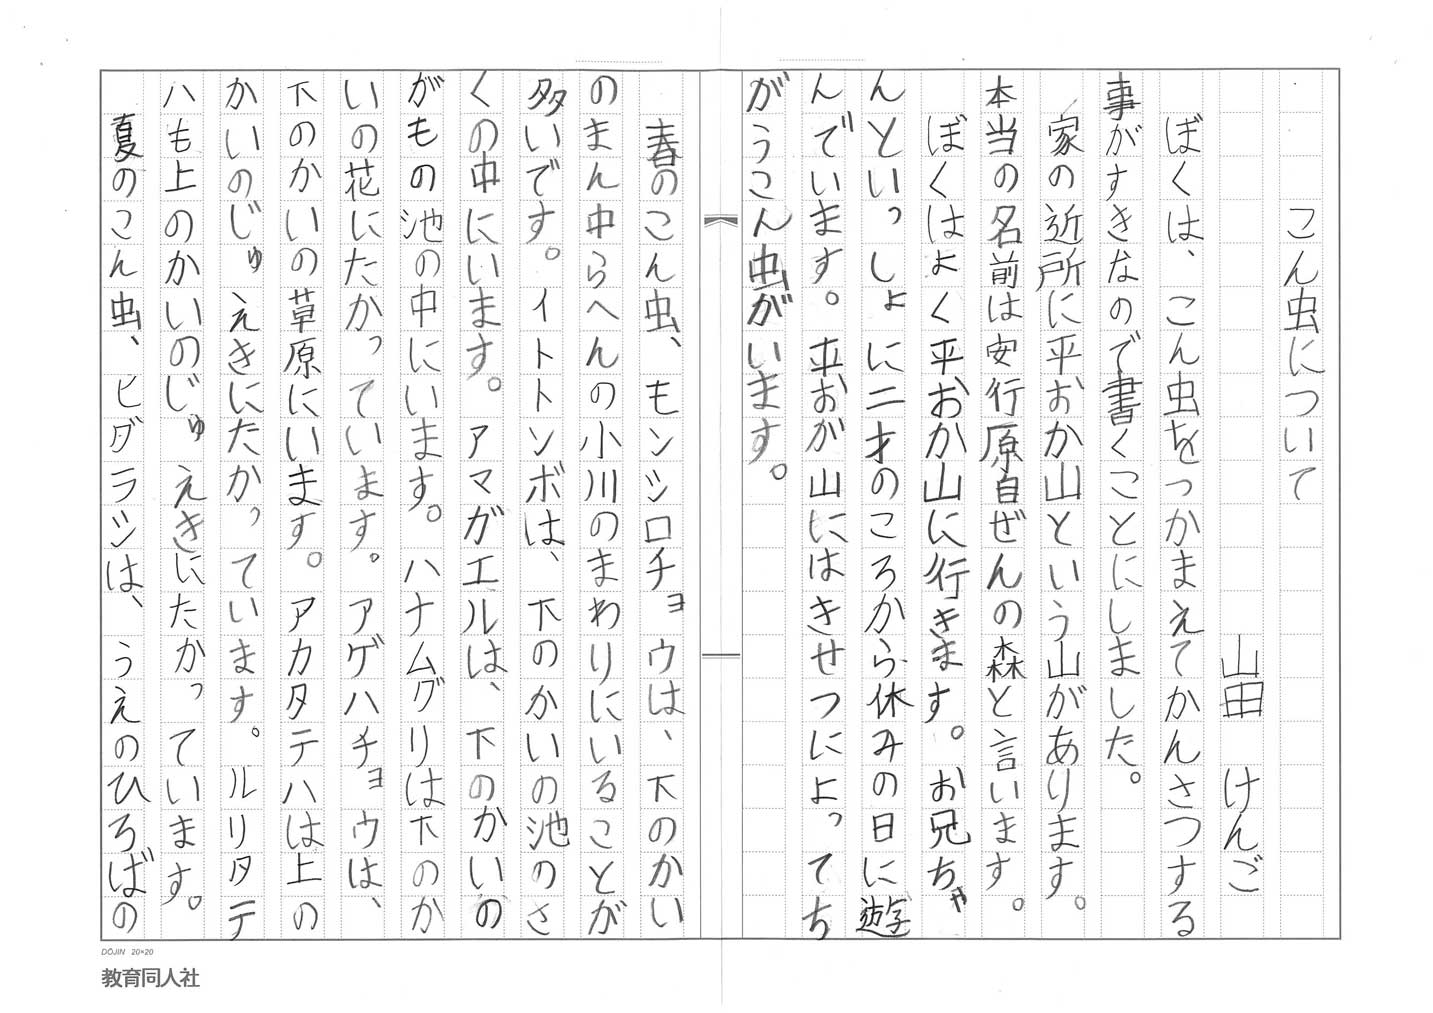 こん虫について
山田 けんご
ぼくは、こん虫をつかまえてかんさつする
事がすきなので書くことにしました。
家の近所に平おか山という山があります。
本当の名前は安行原自ぜんの森と言います。
ぼくはよく平おか山に行きます。お兄ちゃ
んといっしょに二才のころから休みの日に遊
んでいます。平おか山にはきせつによってち
がうこん虫がいます。
春のこん虫、モンシロチョウは、下のかい
のまん中らへんの小川のまわりにいることが
多いです。イトトンボは、下のかいの池のさ
くの中にいます。アマガエルは、下のかいの
がもの池の中にいます。ハナムグリは下のか
いの花にたかっています。アゲハチョウは、
下のかいの草原にいます。アカタテハは上の
かいのじゅえきにたかっています。ルリタテ
ハも上のかいのじゅえきにたかっています。
夏のこん虫、ヒグラシは、うえのひろばの
DŌJIN 20×20
教育同人社